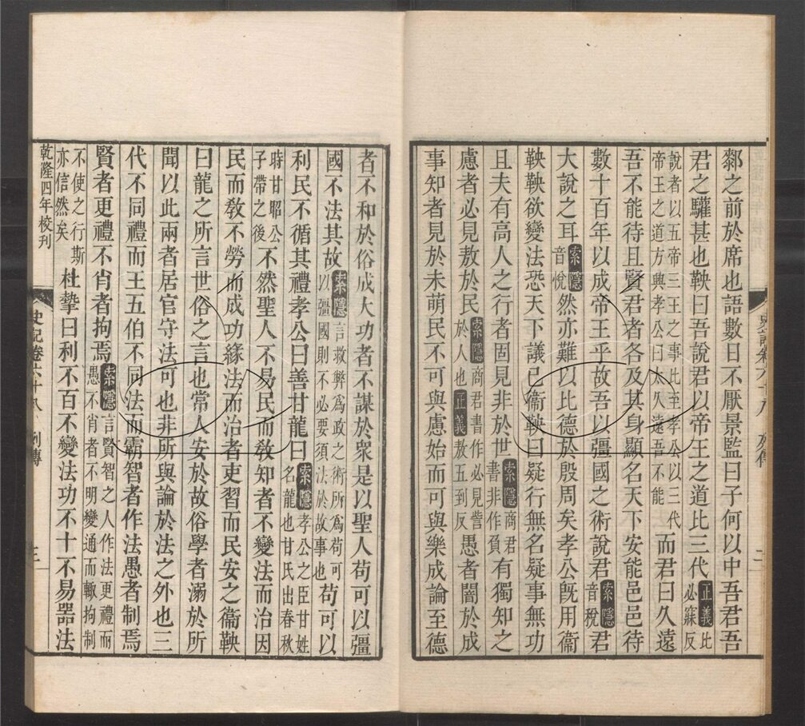 鄴之前於席也語數日不厭景監曰子何以中吾君吾
君之驩甚也鞅曰吾說君以帝王之道比三代正義比必寐反
說者以五帝三王之事比至孝公以三代帝王之道方興孝公曰太久遠吾不能而君曰久遠
吾不能待且賢君者各及其身顯名天下安能邑邑待
數十百年以成帝王乎故吾以彊國之術說君索隱音稅君
大說之耳索隱音悅然亦難以比德於殷周矣孝公旣用衞
鞅鞅欲變法恐天下議已衞鞅曰疑行無名疑事無功
且夫有高人之行者固見非於世索隱商君書非作負有獨知之
慮者必見敖於民索隱商君書作必見訾於人也正義敖五到反愚者闇於成
事知者見於未萌民不可與慮始而可與樂成論至德
二
者不和於俗成大功者不謀於衆是以聖人苟可以彊
國不法其故索隱言救弊爲政之術所爲苟可以彊國則不必要須法於故事也苟可以
利民不循其禮孝公曰善甘龍曰索隱孝公之臣甘姓名龍也甘氏出春秋
時甘昭公子帶之後不然聖人不易民而敎知者不變法而治因
民而敎不勞而成功緣法而治者吏習而民安之衞鞅
曰龍之所言世俗之言也常人安於故俗學者溺於所
聞以此兩者居官守法可也非所與論於法之外也三
代不同禮而王五伯不同法而霸智者作法愚者制焉
賢者更禮不肖者拘焉索隱言賢智之人作法更禮而愚不肖者不明變通而輒拘制
不使之行斯亦信然矣杜摯曰利不百不變法功不十不易器法
乾隆四年校刊
史記卷六十八 列傳
三